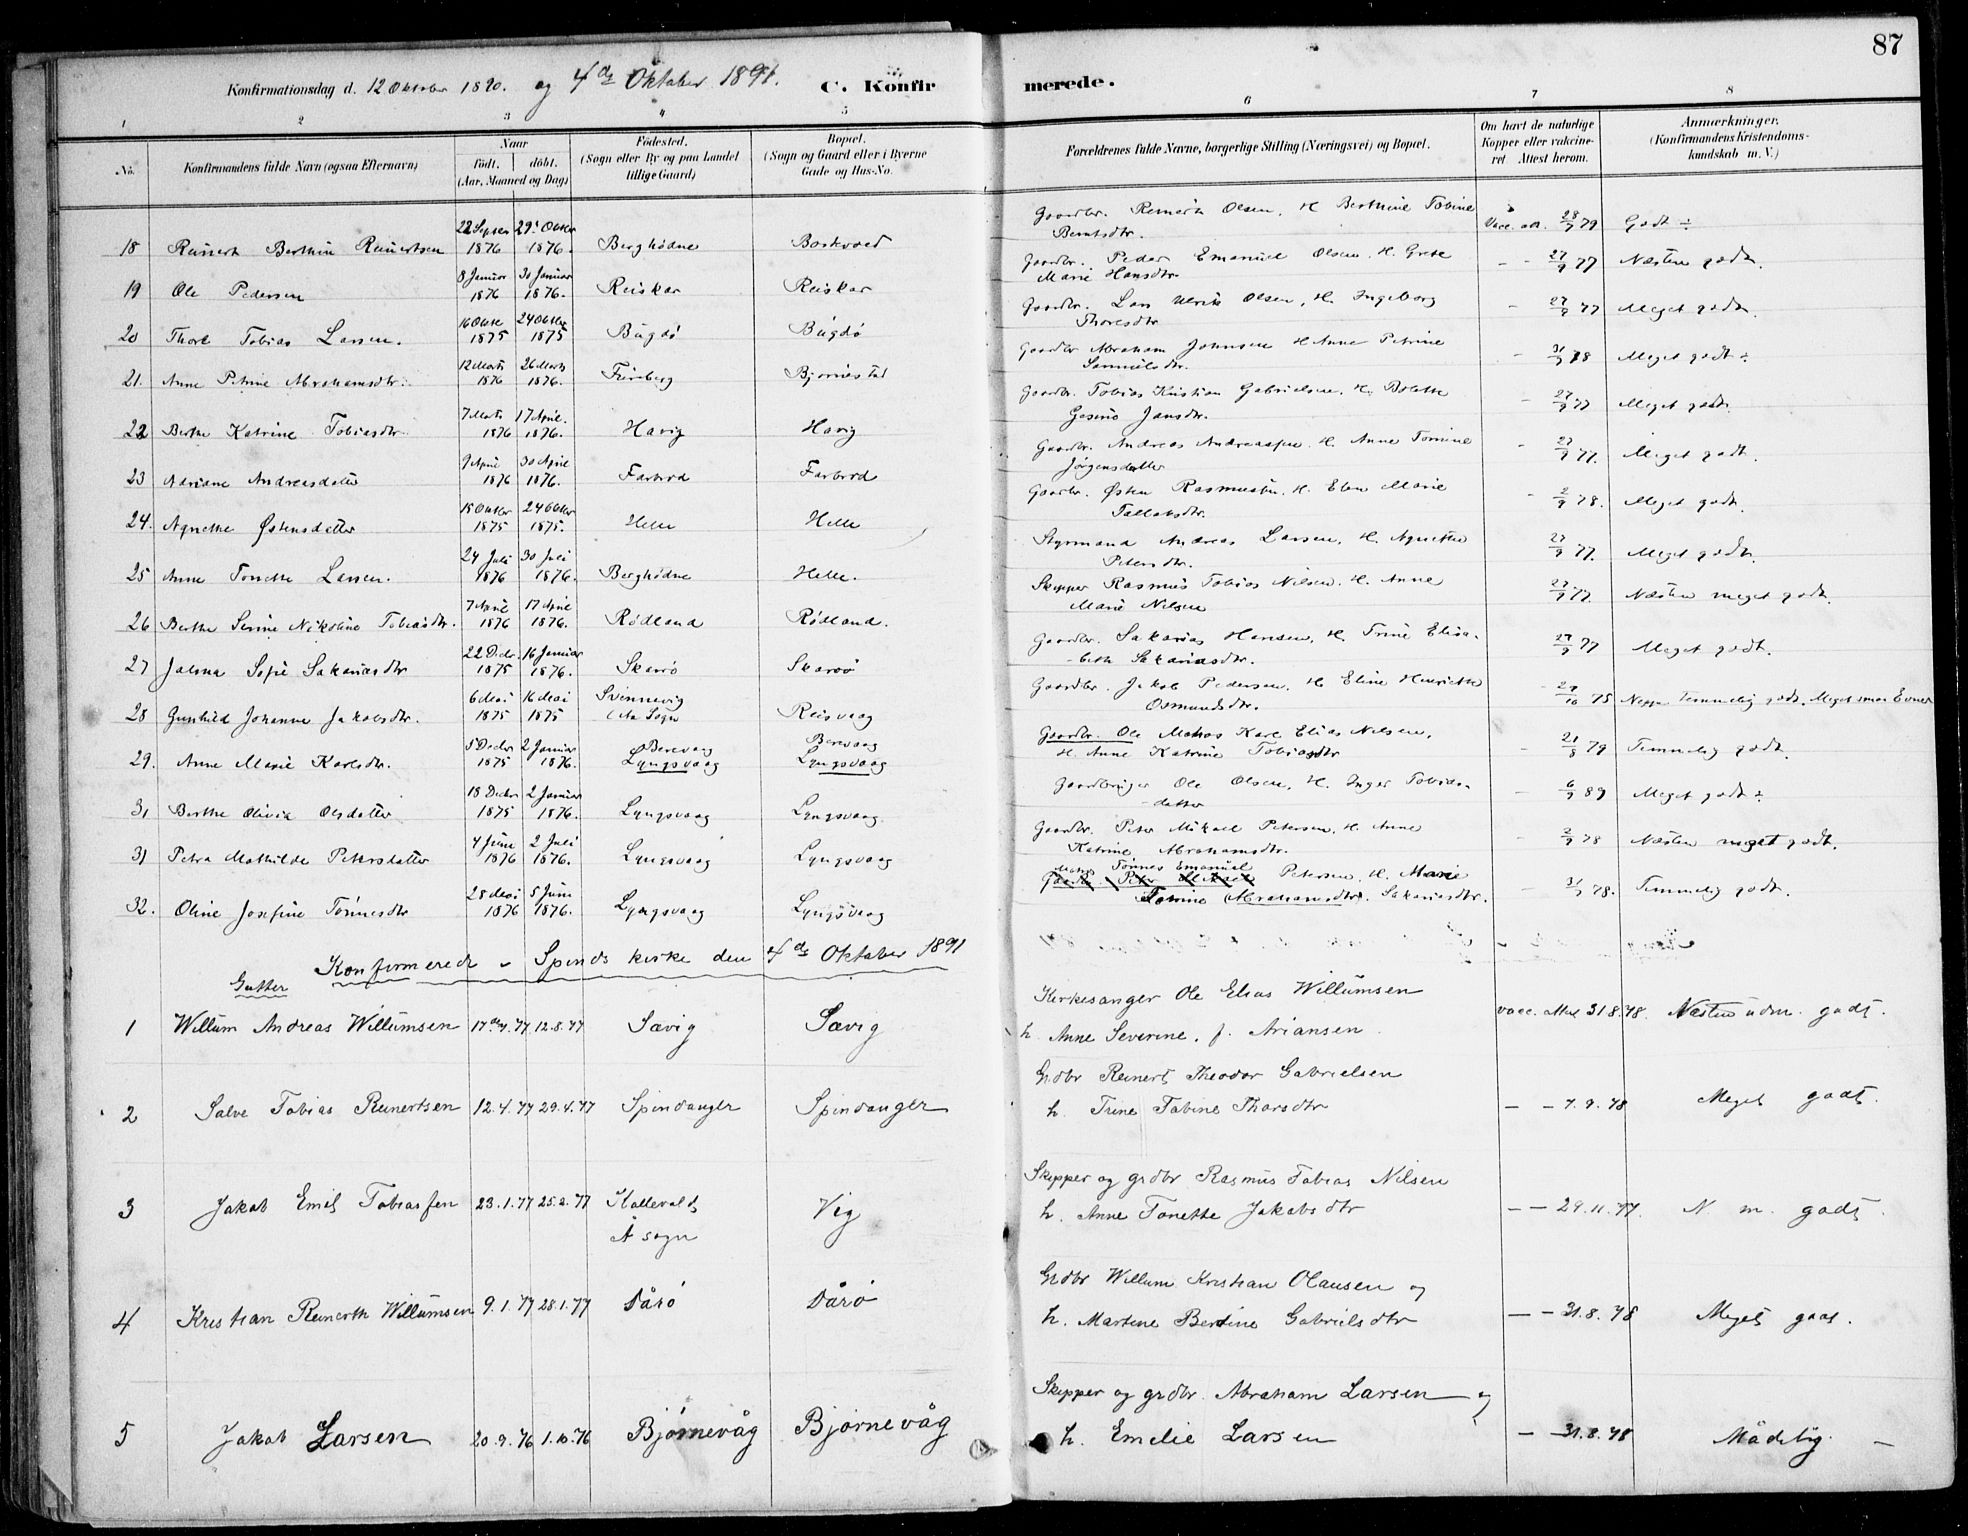 87
Konfirmationsdag d. 12 Oktober 1890. og 4de Oktober 1891. C. Konfirmerede.
1 2 3 4 5 6 7 8
No. Konfirmandens fulde Navn (ogsaa Efternavn) Naar født. døbt. (Aar, Maaned og Dag) Fødested. (Sogn eller By og paa Landet tillige Gaard) Bopæl. (Sogn og Gaard eller i Byerne Gade og Hus-No. Forældrenes fulde Navne, borgerlige Stilling (Næringsvei) og Bopæl. Om havt de naturlige Kopper eller vakcineret. Attest herom. Anmærkninger. (Konfirmandens Kristendomskundskab m. V.)
Gaardbr. Reinert Olsen, H. Berthine Tobine
18 Reinert Berthin Reinertsen 22 Septer 1876 29 Oktbr 1876. Berghødne Berntsdtr. Vacc. att. 28/7 79 Godt ÷
Gaardbr. Peder Emanuel Olsen. H. Grete
19 Ole Pedersen 8 Januar 1876 30 Januar 1876. Reiskar Reiskar Marie Hansdtr. - - 27/9 77 Næsten godt.
Gaardbr. Lars Ulrik Olsen, H. Ingeborg
20 Thore Tobias Larsen. 16 Oktbr 1875 24 Oktbr 1875 Bugdø Bugdø Thoresdtr - 27/9 77 Meget godt.
Gaardbr Abraham Johnsen H Anne Petrine
21. Anne Petrine Abrahamsdtr. 12 Marts 1876 26 Marts 1876. Bjørnestad Samuelsdtr. - 78 Meget godt ÷
Gaardbr. Tobias Kristian Gabrielsen, H. Bolette
22 Berthe Katrine Tobiasdtr. 7 Marts 1876 17 April. 1876. Havig Havig Jansdtr. - 27/9 77 Meget godt.
Gaardbr. Andreas Andreassen. H. Anne Tomine
23 Adriane Andreasdatter 9 April 1876 30 April 1876. Farbrod Farbrod Jørgensdatter - 27/9 77. Meget godt.
Gaardbr. Østen Rasmussen. H. Elen Marie
24. Agnethe Østensdatter 18 Oktbr 1875 24 Oktbr 1875. Helle Helle Tallaksdtr. - 2/9 78. Meget godt.
Styrmand Andreas Larsen, H. Agnethe
25 Anne Tonette Larsen. 24 Juli 1876 30 Juli 1876. Berghødne Helle. Petersdtr. 27/9 77. Meget godt.
Skipper Rasmus Tobias Nilsen. H. Anne
26 Berthe Serine Nikoline Tobiasdtr. 7 April 1876 17 April 1876. Rødland Rødland. Marie Nilsen 27/9 77. Næsten meget godt.
Gaardbr. Sakarias Hansen, H. Trine Elisa-
27 Jalma Sofie Sakariasdtr 22 Decbr. 1875 16 Januar 1876. Skarvø Skarvø beth Sakariasdtr. 27/9 77 Meget godt.
Gaardbr. Jakob Pedersen. H. Eline Henriette
28 Gunhild Johanne Jakobsdtr. 6 Mai 1875 16 Mai 1875 Svennevig Sogn Reisvaag Osmundsdtr. 29/10 75 Neppe Temmelig godt. Meget smaa Evner
Gaardbr. Ole Mathias Karl Elias Nilsen,
29. Anne Marie Karlsdtr. 5 Decbr 1875 2 Januar 1876. Berevaag Lyngsvaag Berevaag Lyngsvaag H. Anne Katrine Tobiasdtr - 21/8 79 Temmelig godt.
Gaardbruger Ole Olsen, H. Inger Tobias-
31 Berthe Olivia Olsdatter 18 Decbr 1875 2 Januar 1876. Lyngsvaag Lyngsvaag. datter - 6/9 89 Meget godt ÷
Gaardbr. Peter Mikael Petersen, H. Anne
31 Petra Mathilde Petersdatter 4 Juni 1876 2 Juli 1876. Lyngsvaag Lyngsvaag Katrine Abrahamsdtr. - 2/9 78 Næsten meget godt.
Tønnes Emanuel
Gaardbr. Peter Mikael Petersen, H. Marie
32. Oline Josefine Tønnesdtr 28 Mai 1876 5 Juni 1876. Lyngsvaag Lyngsvaag Tomine Abrahamsdtr. Sakariasdtr. - 78. Temmelig godt.
Konfirmerede i Spinds kirke den 4de Oktober 1891
Gutter
Kirkesanger Ole Elias Willumsen
1 Willum Andreas Willumsen 77 12.8.77 Sævig Sævig h. Anne Severine, f. Ariansen. vacc. Attest 31.8.78. Næsten udm. godt.
Grdbr Reinert Theodor Gabrielsen
2 Salve Tobias Reinertsen 12.4.77 29.4.77 Spindanger Spindanger h. Trine Tobine Thorsdtr - - 7.9.78 Meget godt.
Skipper og grdbr Rasmus Tobias Nilsen
3 Jakob Emil Tobiassen 23.1.77 25.2.77 Kallevold Å sogn Vig h. Anne Tonette Jakobsdtr - - 29.11.77. N. m. godt.
Grdbr Willum Kristian Olausen og
4 Kristian Reinerth Willumsen 9.1.77 28.1.77 Dårø Dårø h. Martine Bertine Gabrielsdtr - - 31.8.78 Meget godt.
Skipper og grdbr. Abraham Larsen og
5 Jakob Larsen 20.9.76 1.10.76 Bjørnevåg Bjørnevåg h. Emelie Larsen - - 31.8.78 Mådelig. -